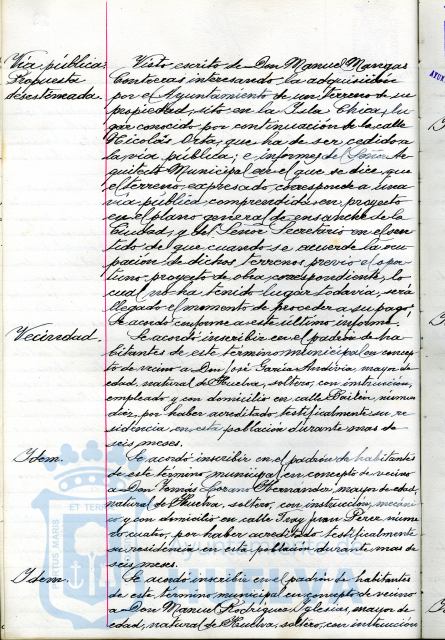 Vía pública.
Propuesta
desestimada.
Visto escrito de Don Manuel Mangas
Contreras interesando la adquisición
por el Ayuntamiento de un terreno de su
propiedad, sito en la Isla Chica, lu
gar conocido por continuación de la calle
Nicolás Orta, que ha de ser cedido a
la vía pública; e informes del Señor Ar
quitecto Municipal en el que se dice que
el terreno expresado corresponde a una
vía pública comprendida en proyecto
en el plano general de ensanche de la
Ciudad, y del Señor Secretario en el sen
tido de que cuando se acuerde la ocu
pación de dichos terrenos previo el opor
tuno proyecto de obra correspondiente, lo
cual no ha tenido lugar todavía, será
llegado el momento de proceder a su pago.
Se acordó conforme a este último informe.
Vecindad.
Se acordó inscribir en el padrón de ha
bitantes de este término municipal en concep
to de vecino a Don José García Andivia, mayor de
edad, natural de Huelva, soltero, con instrucción,
empleado y con domicilio en calle Bailén, número
diez, por haber acreditado testificalmente su re
sidencia en esta población durante mas de
seis meses.
Idem.
Se acordó inscribir en el padrón de habitantes
de este término municipal en concepto de vecino
a Don Tomás Lozano Hernández, mayor de edad,
natural de Huelva, soltero, con instrucción, mecáni
co y con domicilio en calle Fray Juan Pérez núme
ro cuatro, por haber acreditado testificalmente
su residencia en esta población durante mas de
seis meses.
Idem.
Se acordó inscribir en el padrón de habitantes
de este término municipal en concepto de vecino
a Don Manuel Rodríguez Iglesias, mayor de
edad, natural de Huelva, soltero, con instrucción
PORTUS MARIS
ET TERRAE
HUELVA
AYUN